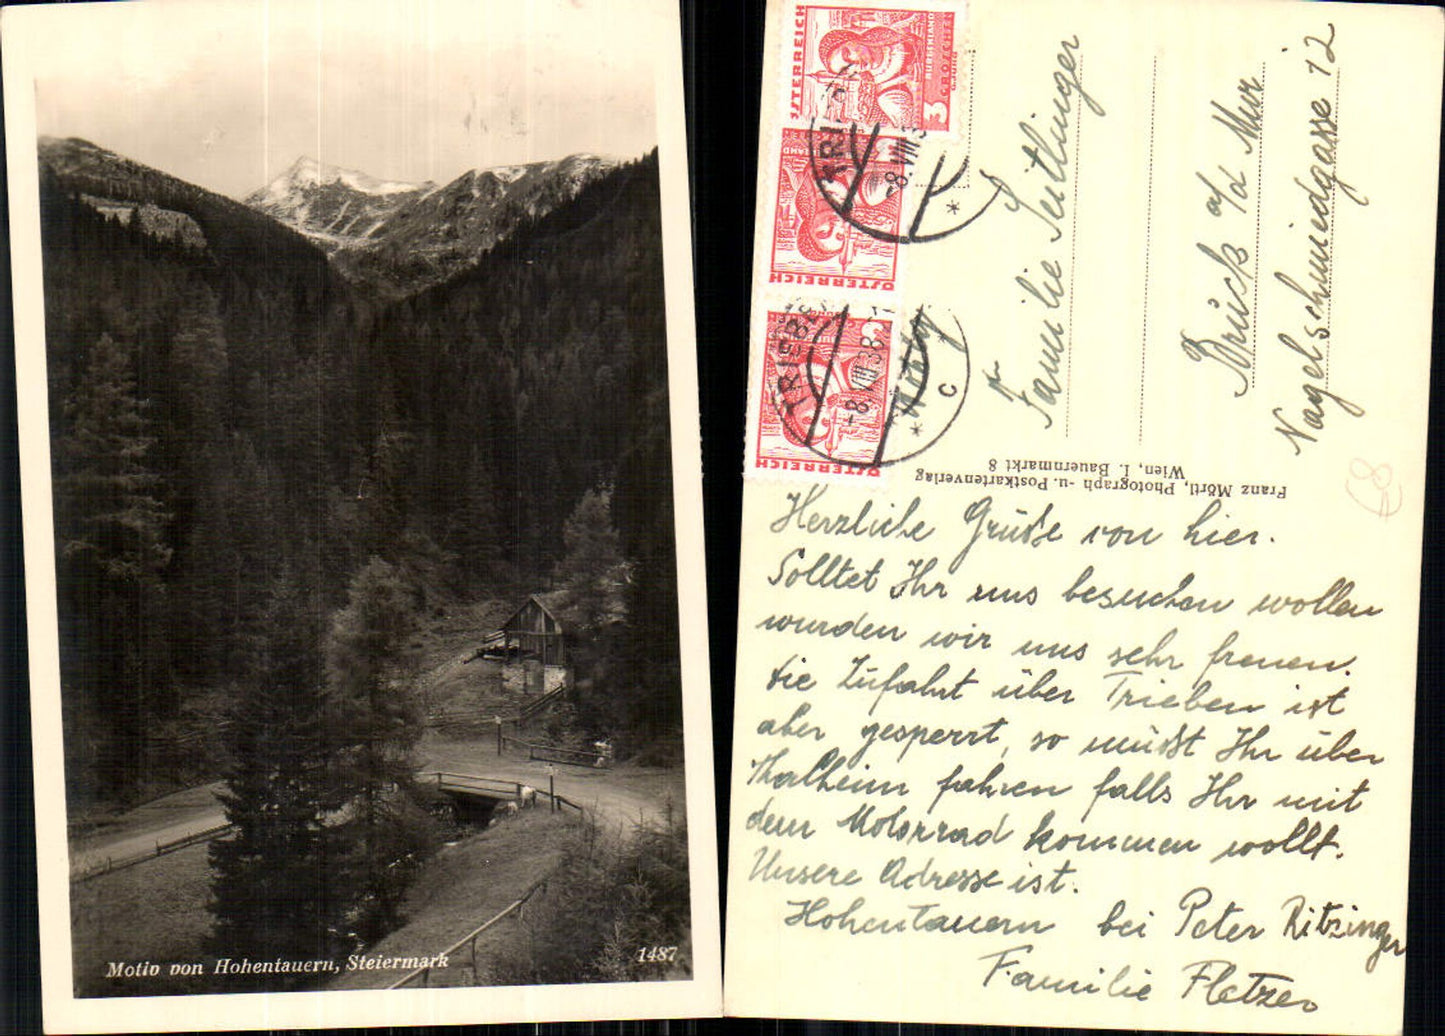 Motiv von Hohentauern, Steiermark
1487
ÖSTERREICH
BURGENLAND
3 GROSCHEN
ÖSTERREICH
ÖSTERREICH
TRIEBEN
-8.VIII.38
* C *
Familie Seitlinger
Bruck a/d Mur
Nagelschmiedgasse 12
Franz Mörtl, Photograph -u. Postkartenverlag
Wien, I. Bauernmarkt 8
Herzliche Grüße von hier.
Solltet Ihr uns besuchen wollen
wurden wir uns sehr freuen.
die Zufahrt über Trieben ist
aber gesperrt, so müßt Ihr über
Thalheim fahren falls Ihr mit
dem Motorrad kommen wollt.
Unsere Adresse ist.
Hohentauern bei Peter Ritzinger
Familie Fletzer